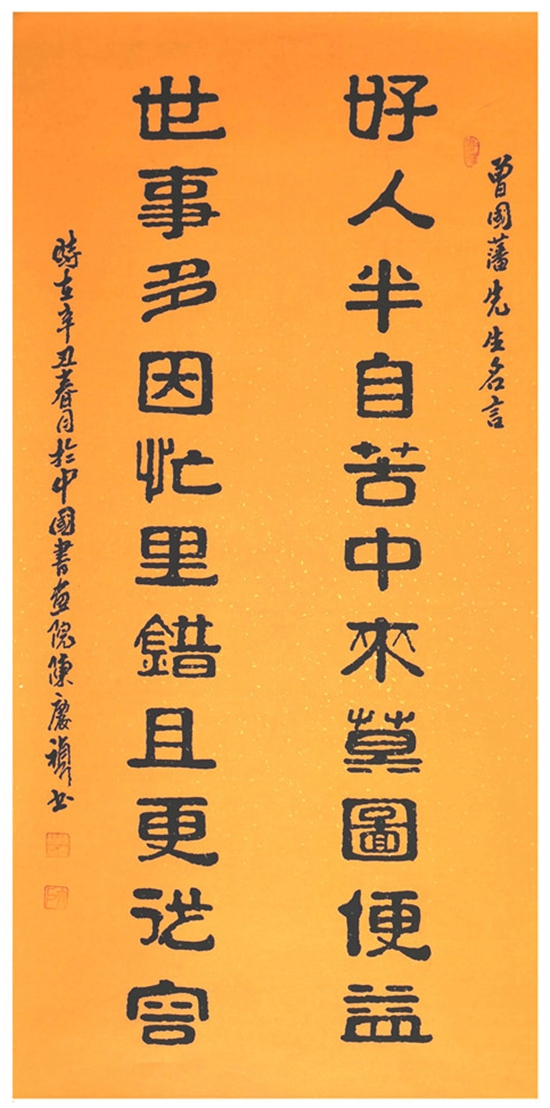 曾国藩先生名言
好人半自苦中來莫圖便益
世事多因忙里錯且更從容
時在辛丑春月於中國書畫院陳慶禎书